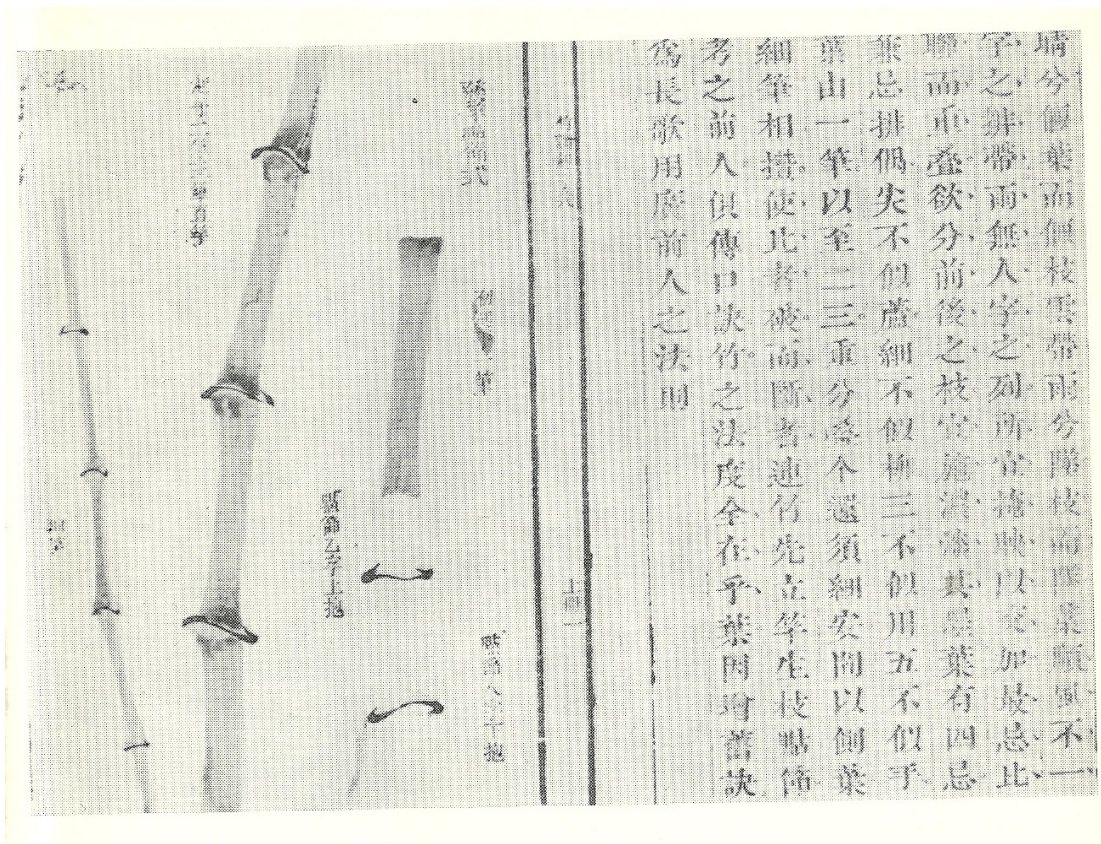 晴兮偃葉而偃枝雲帶雨兮墜枝而墜葉順風不一
字之排帶雨無人字之列所宜掩映以交加最忌比
聯而重叠欲分前後之枝宜施濃淡其墨葉有四忌
兼忌排偶尖不似蘆細不似柳三不似川五不似手
葉由一筆以至二三重分叠个還須細安間以側葉
細筆相搭使比者破而斷者連竹先立竿生枝點節
考之前人俱傳口訣竹之法度全在乎葉因增舊訣
為長歌用廣前人之法則
上冊
發竿點節式
一筆
點節八字下抱
點節乙字上抱
細竿